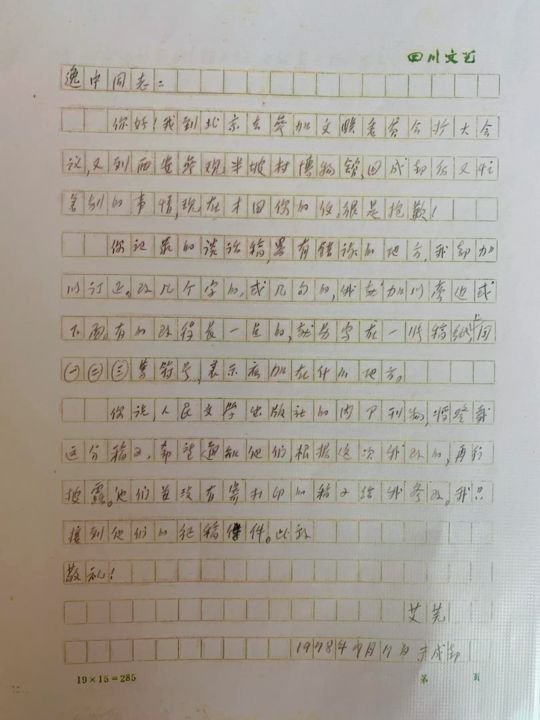 四川文艺
逸中同志：
你好！我到北京去参加文联委员会扩大会
议，又到西安参观半坡村博物馆，回成都后又忙
别的事情，现在才回你的信，很是抱歉！
你记录的谈话稿，略有错误的地方，我都加
以订正。改几个字的，或几句的，我就加以旁边或
下面。有的改得长一点的，就另写在一张稿纸上，用
㊀㊁㊂等符号，表示应加在什么地方。
你说，人民文学出版社的内部刊物，将登载
这分稿子。希望通知他们，根据这次我改的，再行
披露。他们并没有寄打印的稿子给我参改。我只
接到他们的征稿信件。此致
敬礼！
艾芜
1978年9月11日于成都
19×15=285 第 页